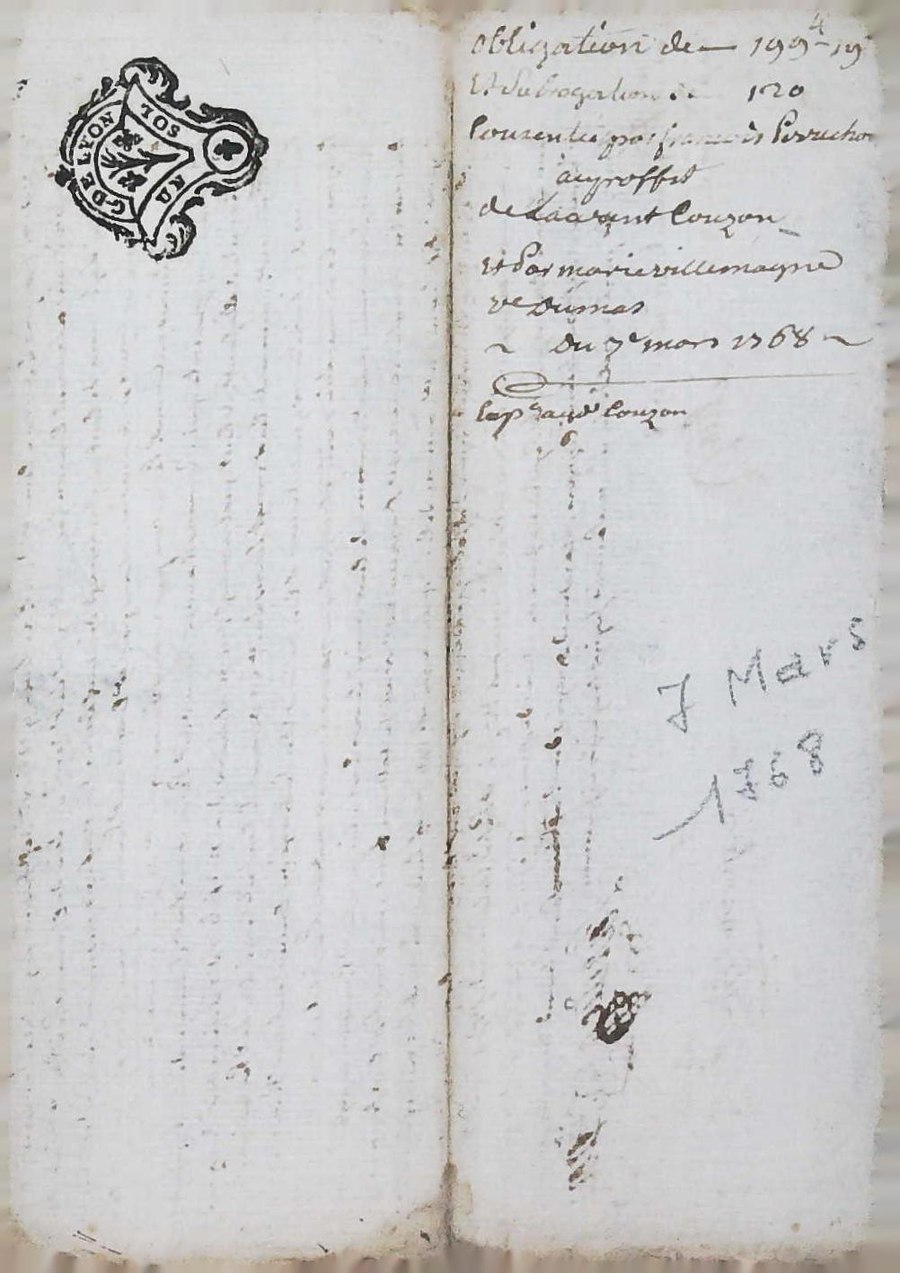 G DE LYON
UN
TOS
obligation de 199 - 19
4
Et Subrogation de 120
Consentie par françois Perruchon
au proffit
de Laurant Couzon
et Par marie villemagne
ve Dumas
~ du 7e mars 1768 ~
Couzon
7 Mars
1768